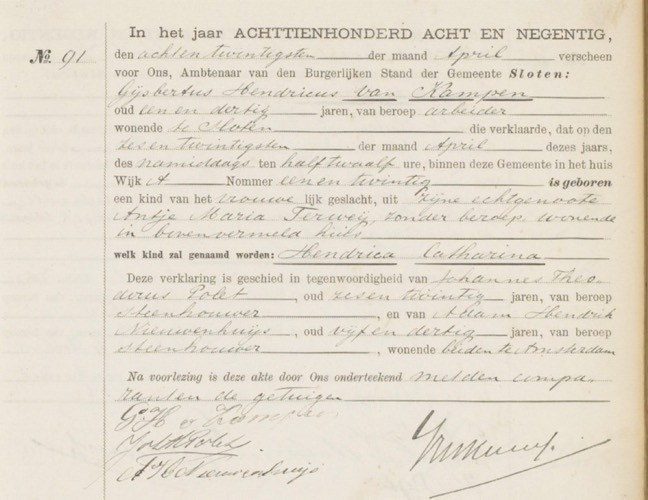 In het jaar ACHTTIENHONDERD ACHT EN NEGENTIG,
№. 91 den achten twintigsten der maand April verscheen
voor Ons, Ambtenaar van den Burgerlijken Stand der Gemeente Sloten:
Gijsbertus Hendricus van Kampen
oud een en dertig jaren, van beroep arbeider
wonende te Sloten die verklaarde, dat op den
zes en twintigsten der maand April dezes jaars,
des namiddags ten half twaalf ure, binnen deze Gemeente in het huis
Wijk A Nommer een en twintig is geboren
een kind van het vrouwe lijk geslacht, uit zijne echtgenoote
Antje Maria Terweij, zonder beroep, wonende
in bovenvermeld huis
welk kind zal genaamd worden: Hendrica Catharina
Deze verklaring is geschied in tegenwoordigheid van Johannes Theo-
dorus Polet, oud zes en twintig jaren, van beroep
steenhouwer, en van Adam Hendrik
Nieuwenhuijs, oud vijf en dertig jaren, van beroep
steenhouwer, wonende beiden te Amsterdam
Na voorlezing is deze akte door Ons onderteekend met den compa-
ranten de getuigen
G H v Kampen
J Th Polet
A H Nieuwenhuijs